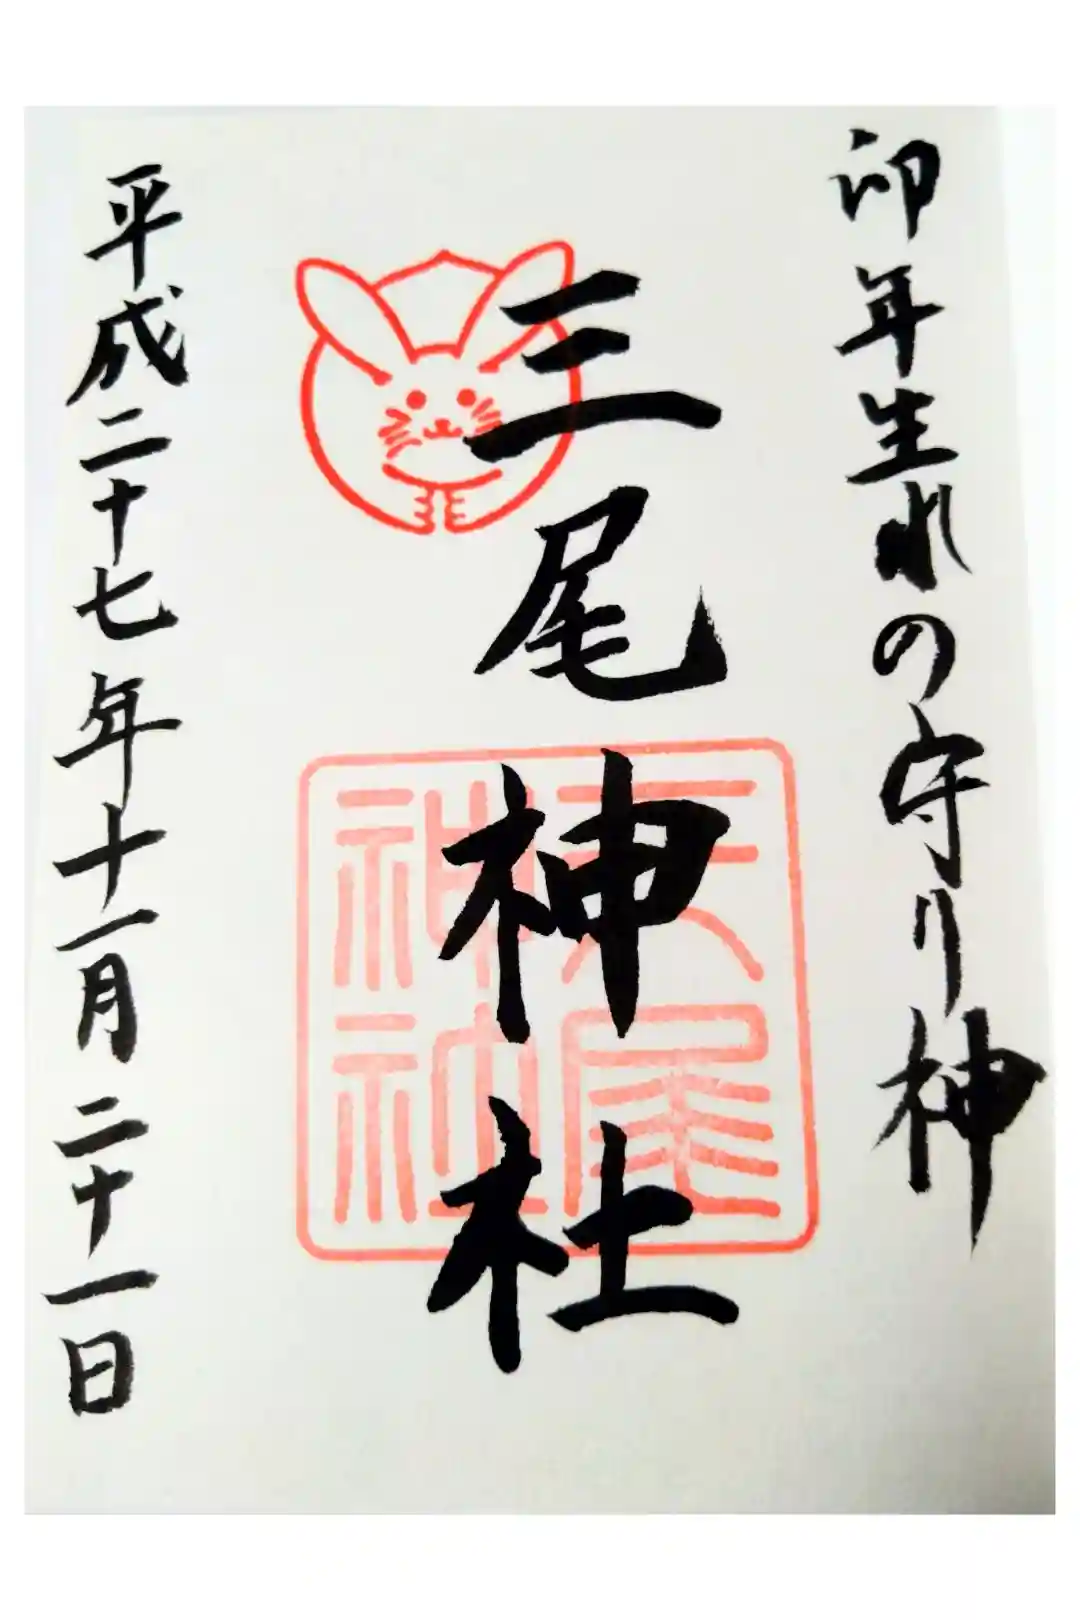 卯年生れの守り神
三尾神社
三尾神社
平成二十七年十一月二十一日